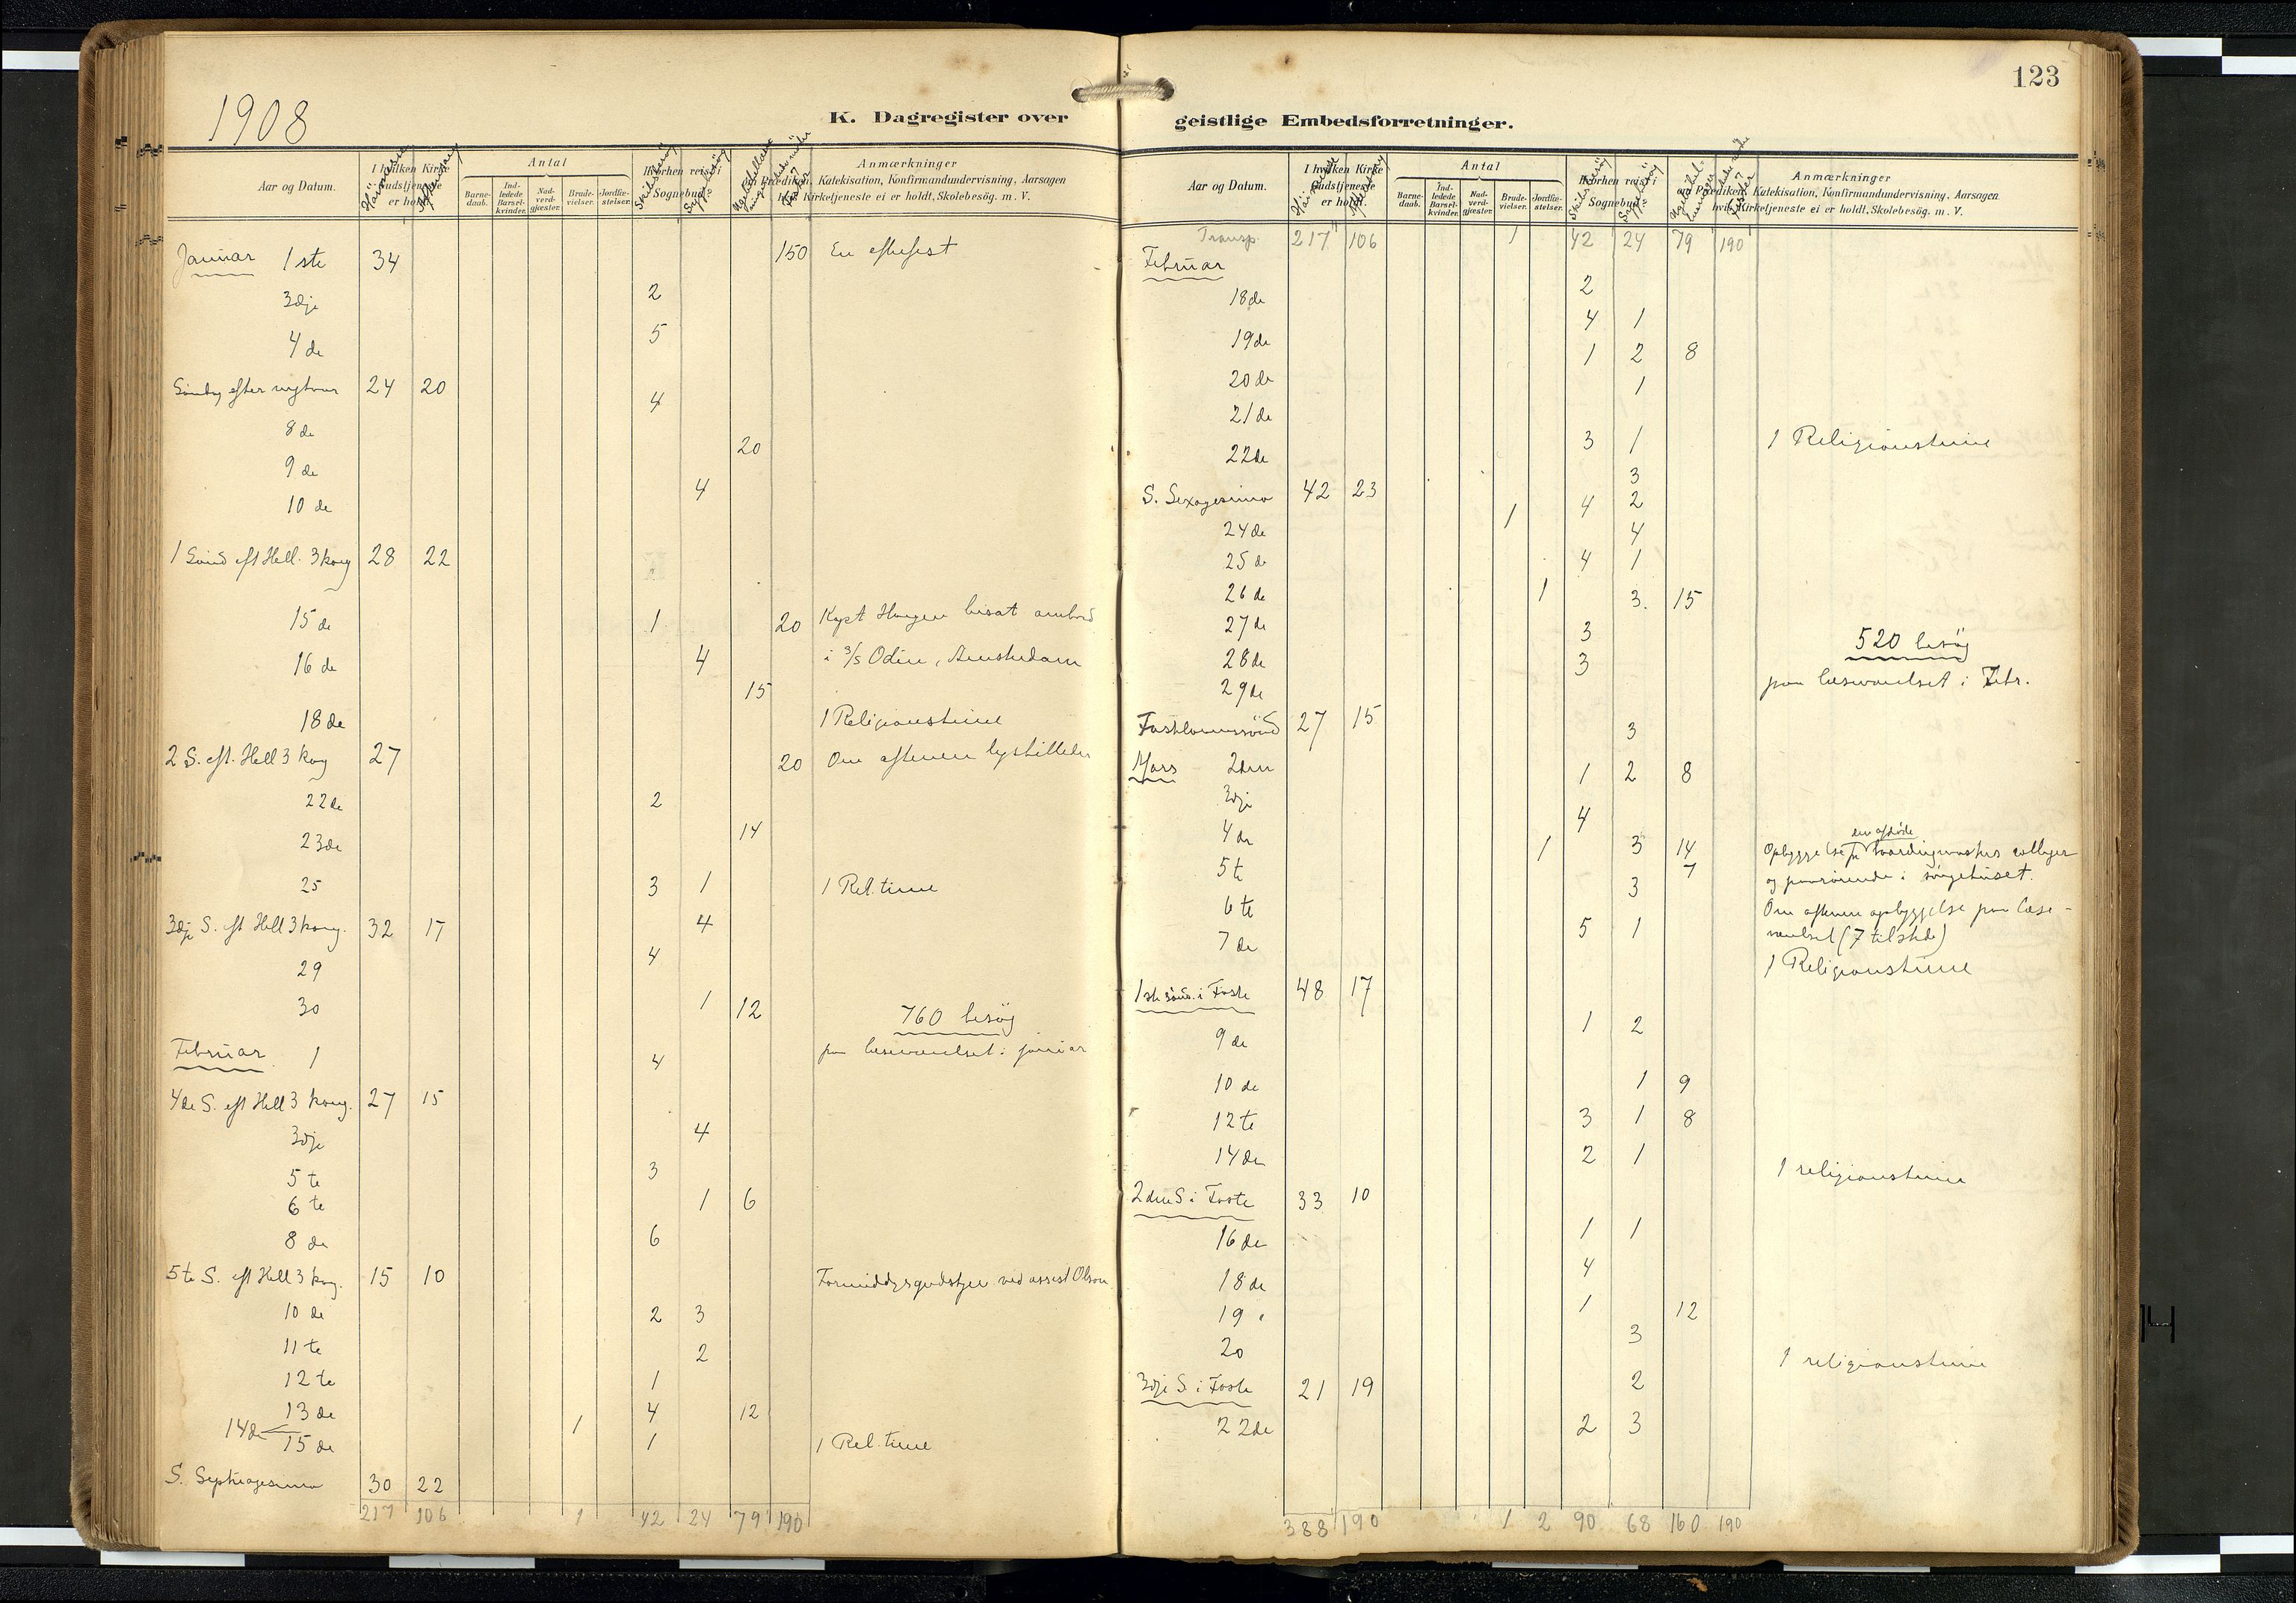 1908
K. Dagregister over
Aar og Datum.
I hvilken Kirke Gudstjeneste er holdt
Högmesse
Aftensang
Antal
Barne-daab.
Ind-ledede Barsel-kvinder.
Nad-verd-gjæster.
Brude-vielser.
Jordfæ-stelser.
Hvorhen reist i Sognebud
Skibsbesög
Sygebesög
Anmærkninger
om Prædiken, Katekisation, Konfirmandundervisning, Aarsagen
hvis Kirketjeneste ei er holdt, Skolebesög. m. V.
Januar 1ste 34 150 En eftefest
3dje 2
4de 5
Söndag efter nytaar 24 20
8de 4
9de 20
10de 4
1 Sönd eft Hell. 3 kong 28 22
15de 1 20 Kapt Haugen bisat ombord
16de 4 i S/S Odin, Amsterdam
15
18de 1 Religionstime
2 S. eft. Hell 3 kong 27 20 Om aftenen lysbilleder
22de 2
23de 14
25 3 1 1 Rel. time
3dje S. eft Hell 3 kong. 32 17 4
29 4
30 1 12 760 besög
Februar 1 4 paa læseværelset i januar
4de S. eft Hell 3 kong. 27 15
3dje 4
5te 3
6te 1 6
8de 6
5te S. eft Hell 3 kong. 15 10 Formiddagsgudstjen ved assist Olsen
10de 2 3
11te 2
12te 1
13de 4 12
14de 1
15de 1 1 Rel. time
S. Septuagesima 30 22
217 106 1 42 24 79 190
123
geistlige Embedsforretninger.
Aar og Datum.
I hvilken Kirke Gudstjeneste er holdt
Högmesse
Aftensang
Antal
Barne-daab.
Ind-ledede Barsel-kvinder.
Nad-verd-gjæster.
Brude-vielser.
Jordfæ-stelser.
Hvorhen reist i Sognebud
Skibsbesög
Sygebesög
Anmærkninger
om Prædiken, Katekisation, Konfirmandundervisning, Aarsagen
hvis Kirketjeneste ei er holdt, Skolebesög. m. V.
Transp. 217 106 1 42 24 79 190
Februar
18de 2
19de 4 1
20de 1 2 8
21de 1
22de 3 1 1 Religionstime
S. Sexagesima 42 23 3
24de 1 4 2
25de 4
26de 4 1
27de 1 3. 15
28de 3 520 besög
29de 3 paa læseværelset i Febr.
Fastelavnssönd 27 15
Mars 2den 3
3dje 1 2 8
4de 4
5te 1 3 14 Opbyggelse for den afdöde værdinæstes colleger
7 og paarörende i sörgehuset.
6te 3 Om aftenen opbyggelse paa læse-
7de 5 1 værelset (7 tilstede)
1 Religionstime
1ste sönd. i Faste 48 17
9de 1 2
10de 1 9
12te 3 1 8
14de 2 1 1 religionstime
2den S i Faste 33 10
16de 1 1
18de 4
19 " 1 12
20 3
1 religionstime
3dje S i Faste 21 19 2
22de 2 3
388 190 1 2 90 68 160 190